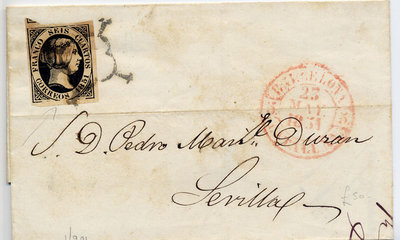 FRANCO SEIS CUARTOS
CORREOS 1851
BARCELONA
23
MAY
1851
S. D. Pedro Man.l Duran
Sevilla
£50